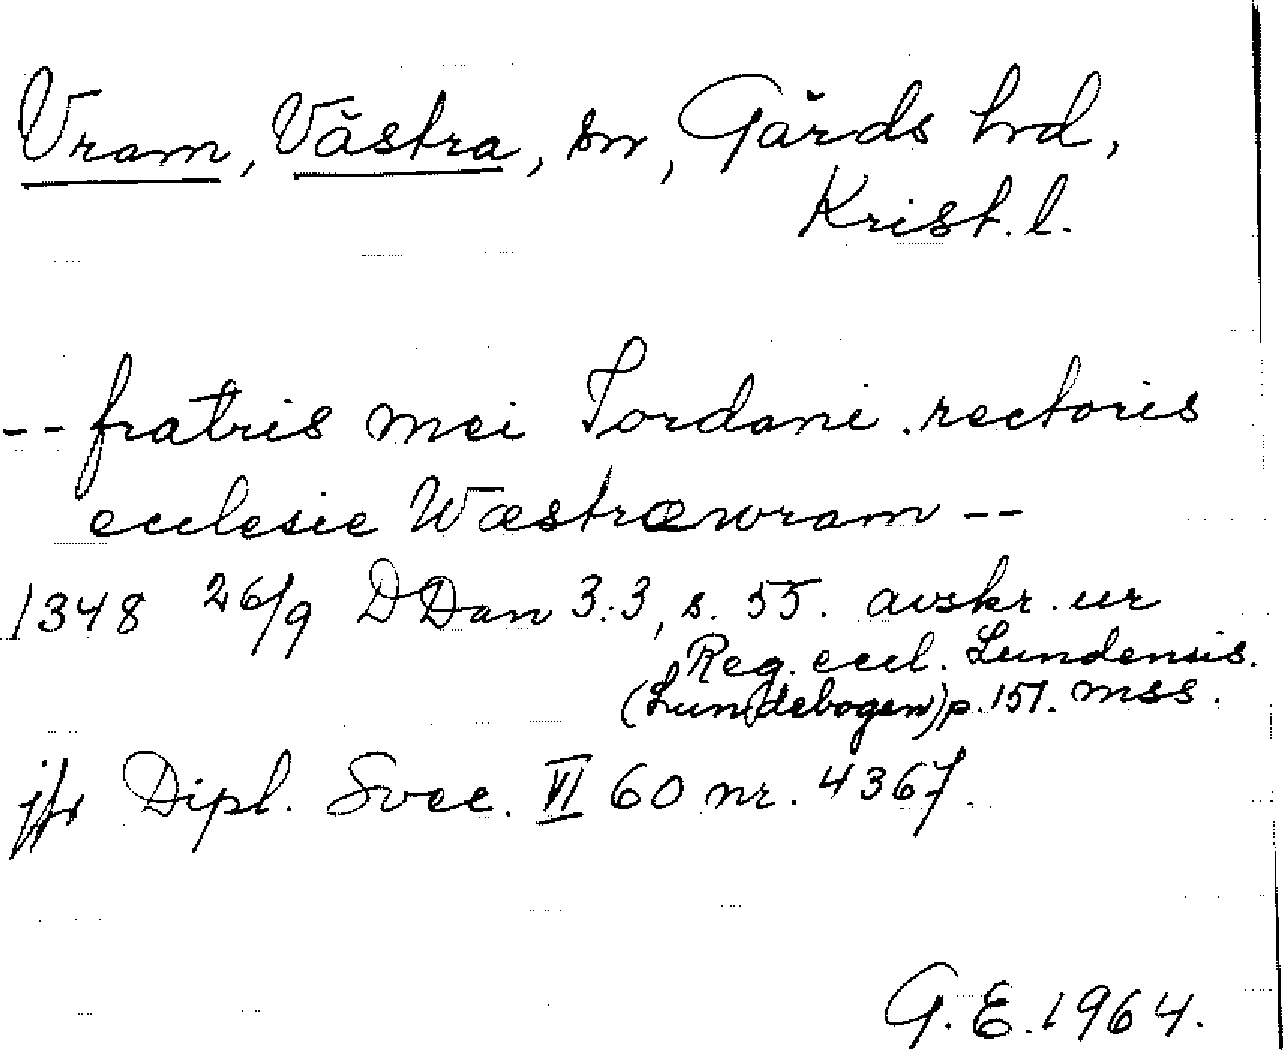 Vram, Västra, sn, Gärds hrd,
Krist. l.
-- fratris mei Iordani rectoris
ecclesie Wæstræwram --
1348 26/9 DDan 3:3, s. 55. avskr. ur
Reg. eccl. Lundensis.
(Lundebogen) p. 151. mss.
jfr Dipl. Svec. VI 60 nr. 4367.
G.E. 1964.